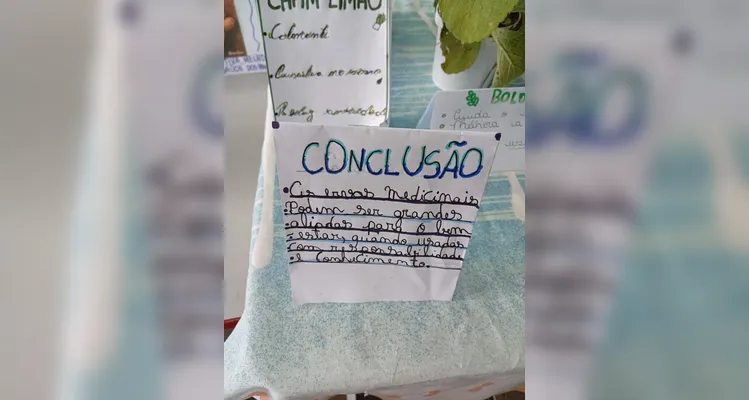 CAPIM LIMÃO
Calmante
BOLD
Ajuda a
CONCLUSÃO
• As ervas Medicinais
Podem ser grandes
aliadas para o bem
estar, quando usadas
com responsabilidade
e Conhecimento.